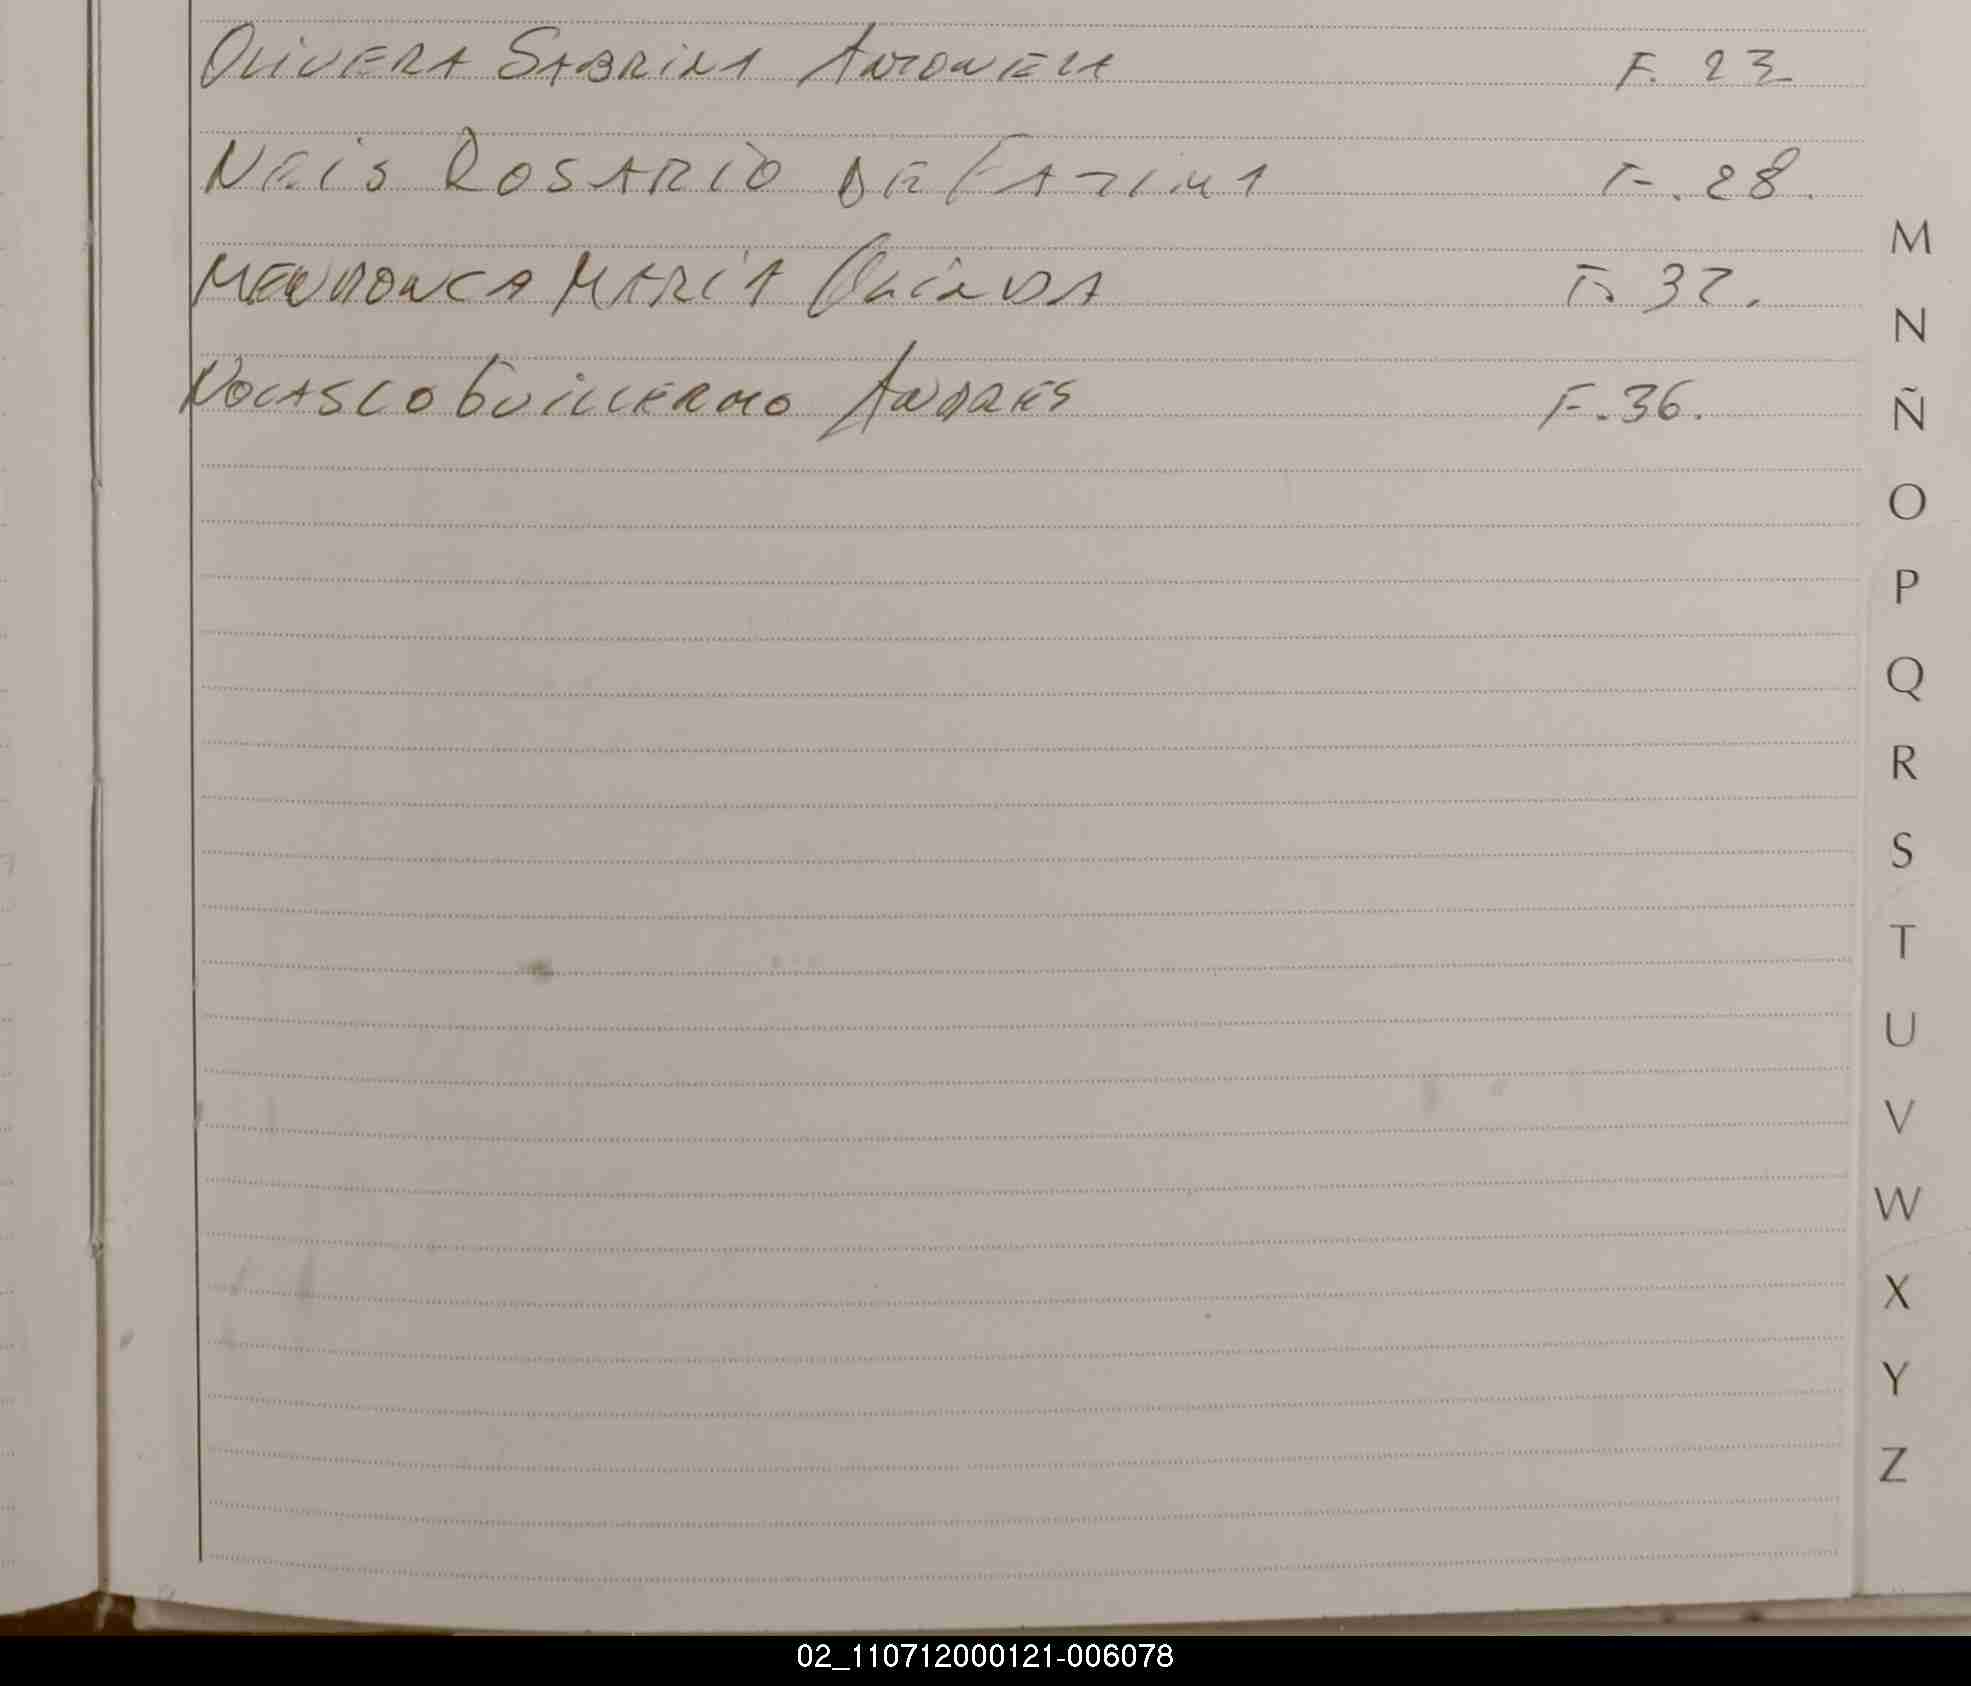 OLIVERA SABRINA ANTONELA F. 23
NEIS ROSARIO DE FATIMA F. 28.
MENDONCA MARIA OLINDA F. 32.
NOLASCO GUILLERMO ANDRES F. 36.
M
N
Ñ
O
P
Q
R
S
T
U
V
W
X
Y
Z
02_110712000121-006078